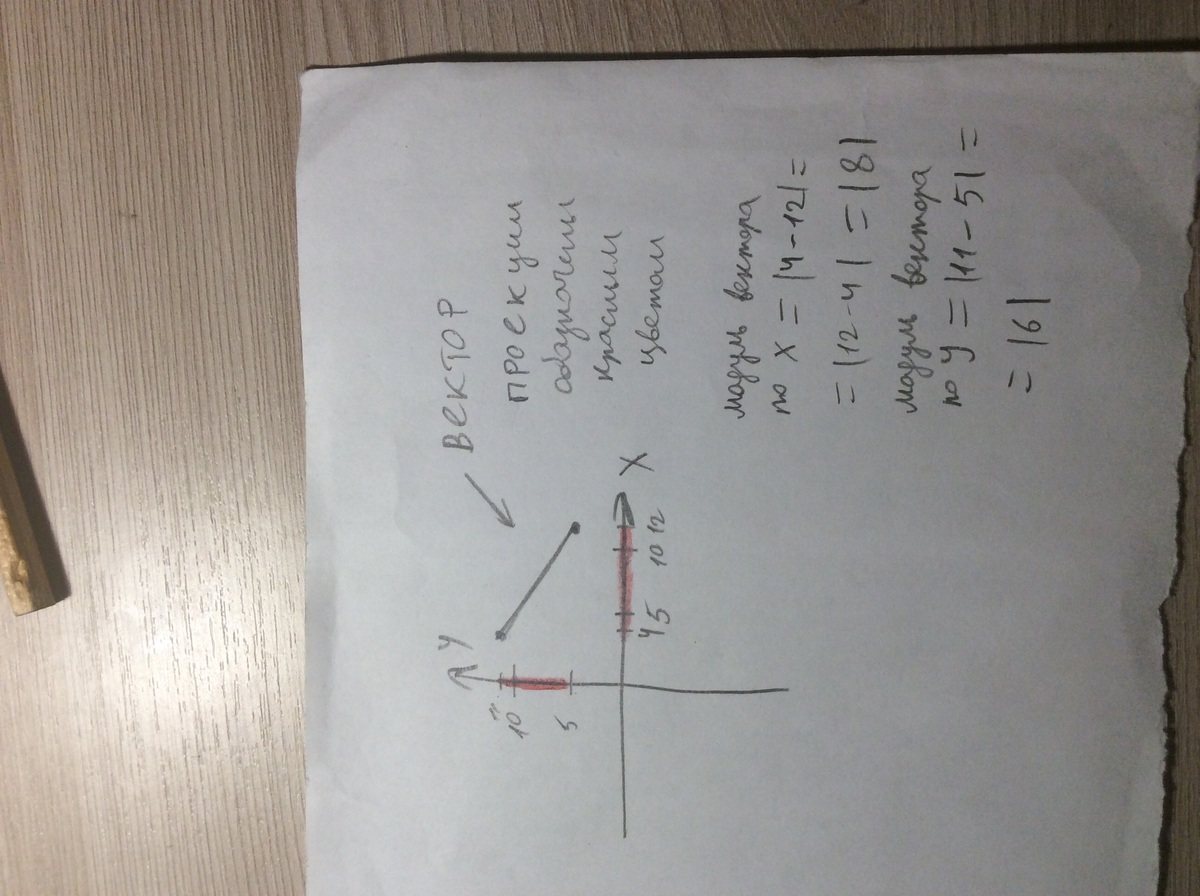 ВЕКТОР
ПРОЕКЦИИ
обозначены
красным
цветом
У
11
10
5
4 5 10 12
X
модуль вектора
по X = |4-12| =
= |12-4| = |8|
модуль вектора
по У = |11-5| =
= |6|